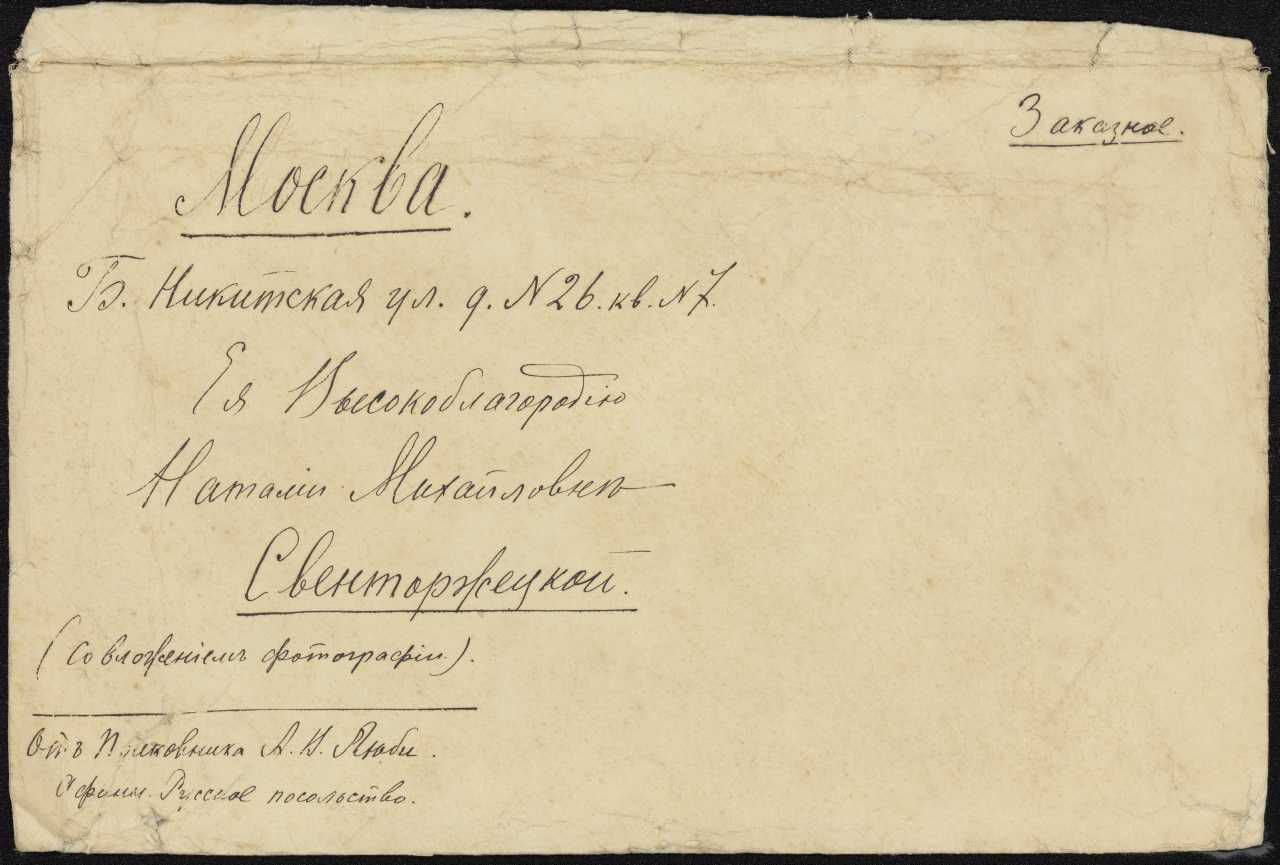 Заказное.
Москва.
Б. Никитская ул. д. N 26. кв. N 7.
Ея Высокоблагородію
Наталіи Михайловнѣ
Свенторжецкой.
(со вложеніемъ фотографіи.).
Отъ Полковника А. И. Люби.
Русское посольство.